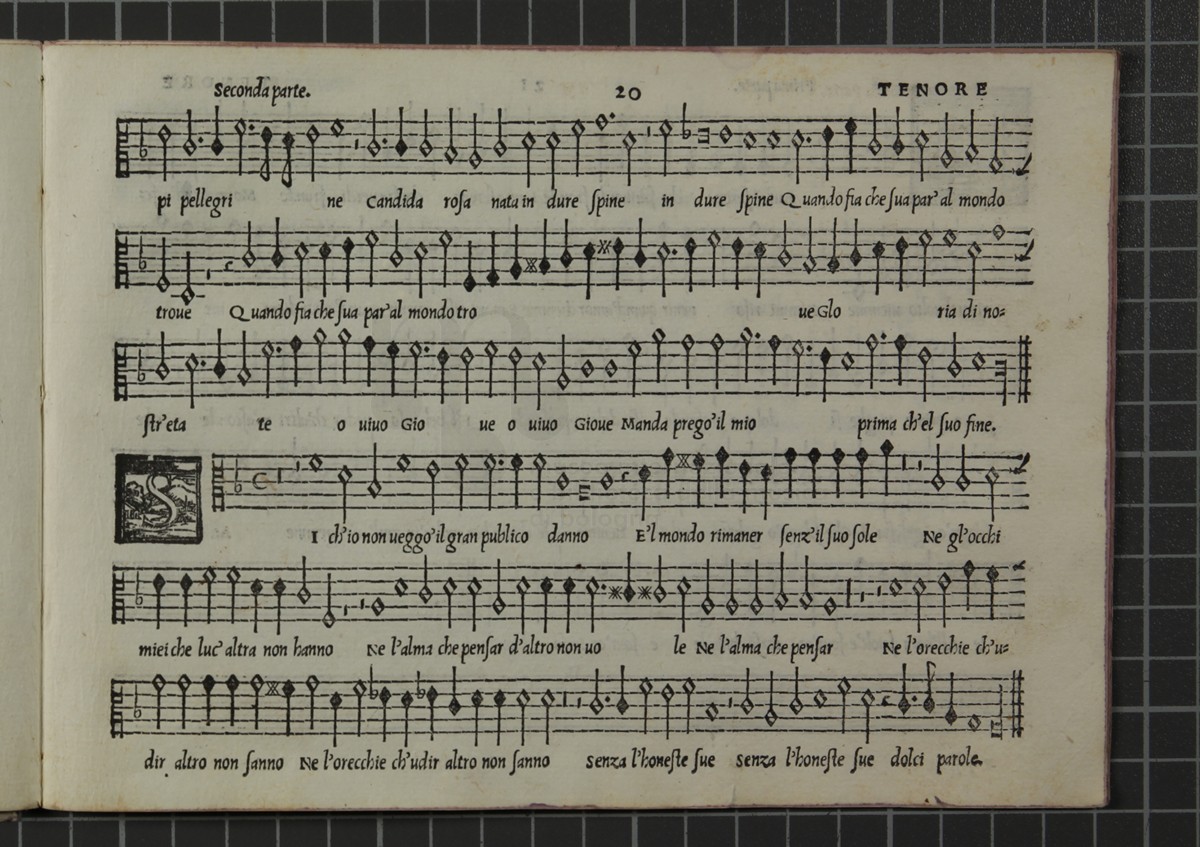 Seconda parte. 20 TENORE
pi pellegri ne Candida rosa nata in dure spine in dure spine Quando fia che sua par' al mondo
troue Quando fia che sua par'al mondo tro ue Glo ria di no=
str'eta te o uiuo Gio ue o uiuo Gioue Manda prego'il mio prima ch'el suo fine.
S I ch'io non ueggo'il gran publico danno E'l mondo rimaner senz'il suo sole Ne gl'occhi
miei che luc' altra non hanno Ne l'alma che pensar d'altro non uo le Ne l'alma che pensar Ne l'orecchie ch'u=
dir altro non sanno Ne l'orecchie ch'udir altro non sanno Senza l'honeste sue Senza l'honeste sue dolci parole.